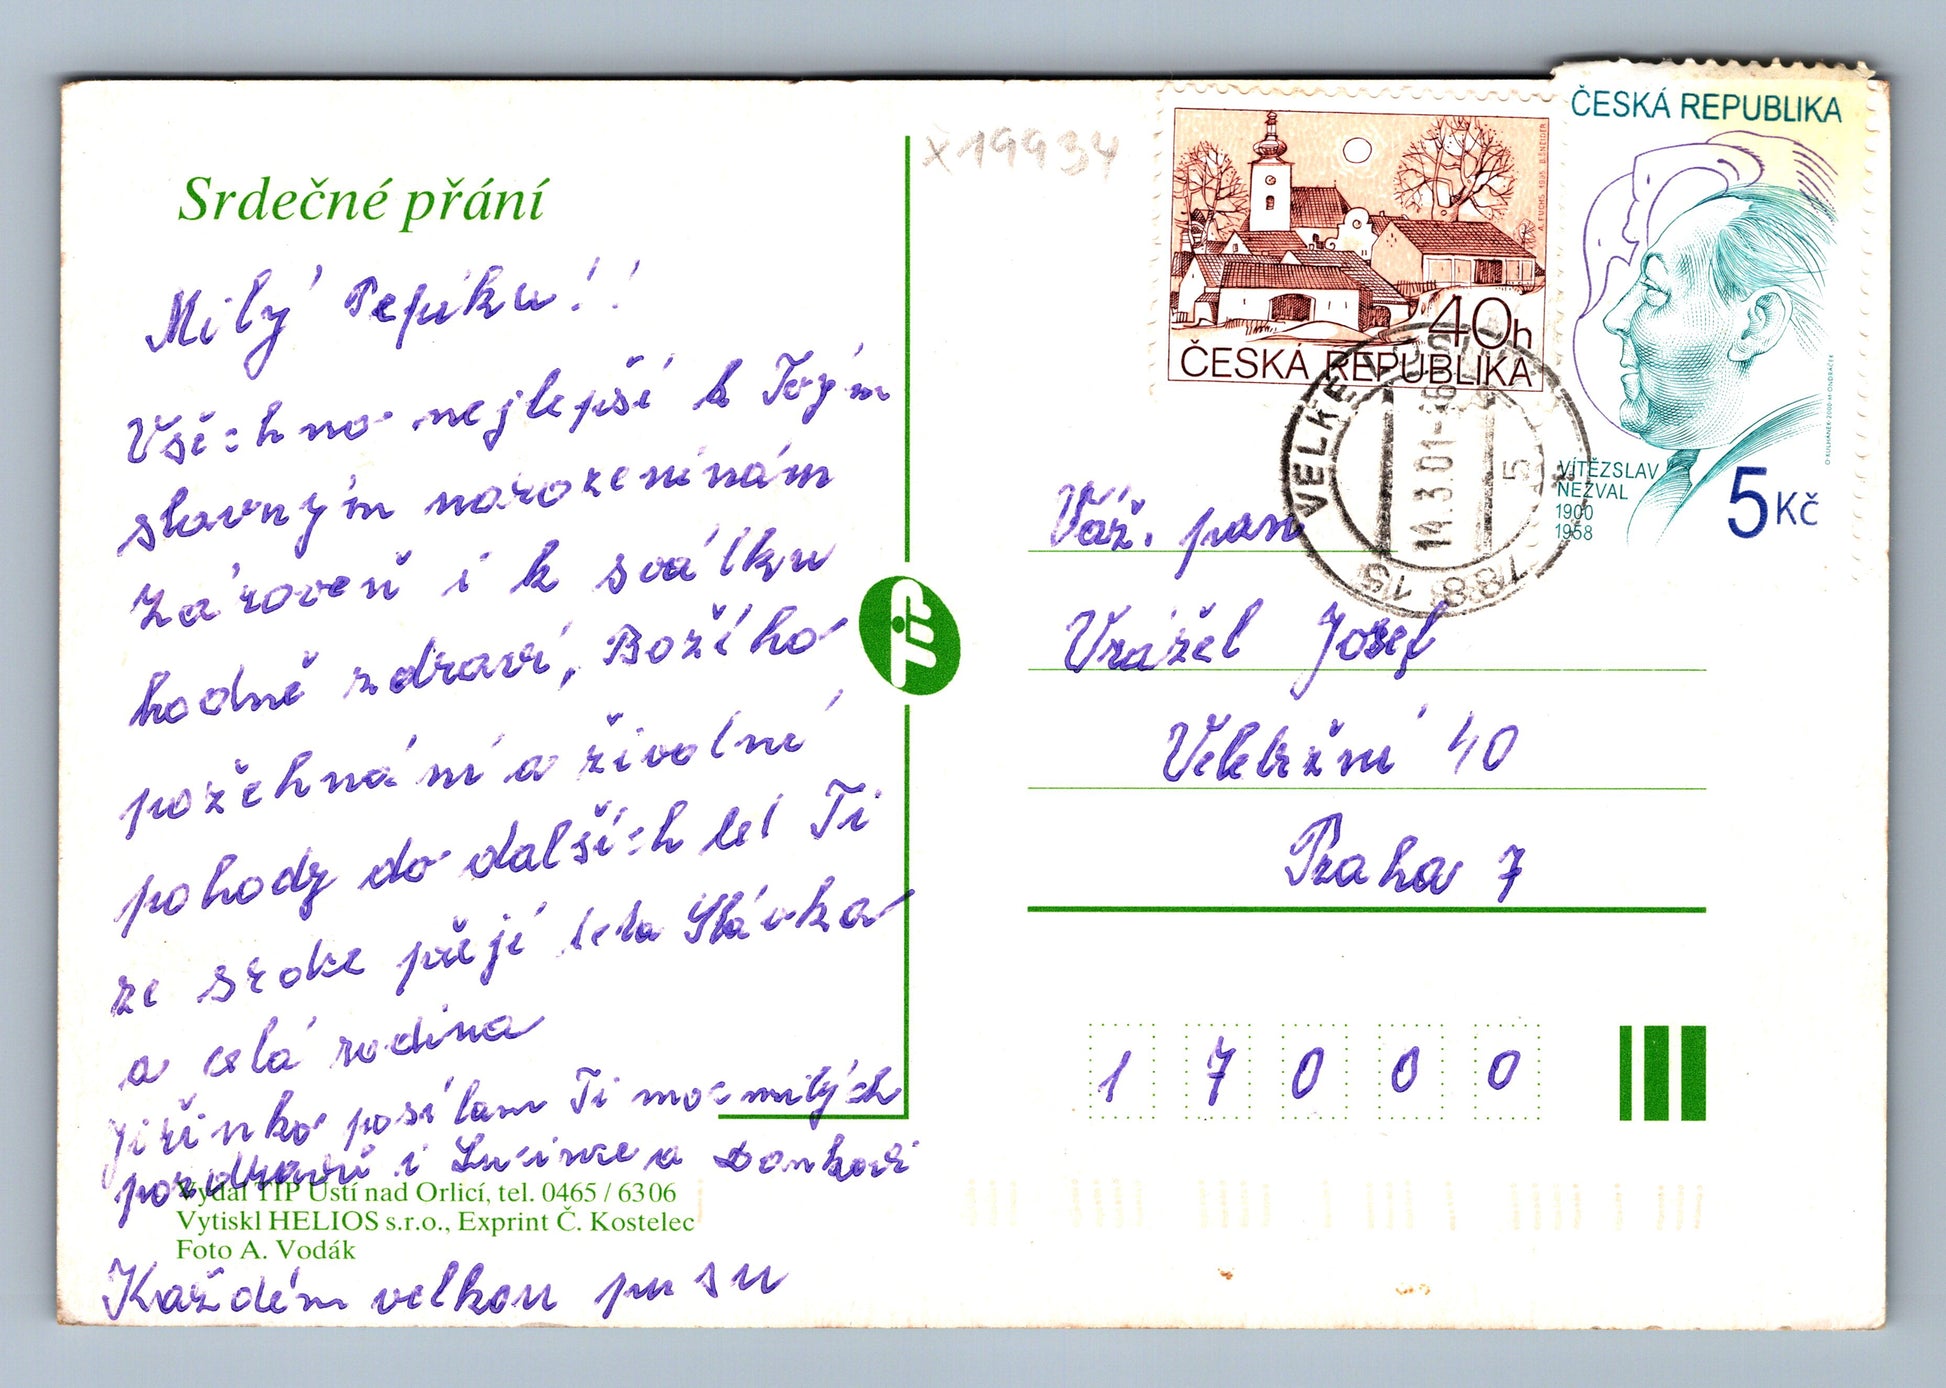 Srdečné přání
Milý Pepíku!!
Všechno nejlepší k Tvým
slavným narozeninám
zároveň i k svátku
hodně zdraví, Božího
požehnání a životní
pohody do dalších let Ti
ze srdce přejí teta Slávka
a celá rodina
Jiřinko posílam Ti moc milých
pozdravů i Lucince a Domkovi
Vydal TIP Ústí nad Orlicí, tel. 0465 / 6306
Vytiskl HELIOS s.r.o., Exprint Č. Kostelec
Foto A. Vodák
Každém velkou pusu
TIP
x19934
40h
ČESKÁ REPUBLIKA
A. FUCHS 1995 B. ŠNEIDER
ČESKÁ REPUBLIKA
VÍTĚZSLAV
NEZVAL
1900
1958
5Kč
O. KULHÁNEK-2000-M. ONDRÁČEK
VELKÉ
14.3.01-
5
788 15
Váž. pan
Vrážel Josef
Veletržní 40
Praha 7
17000